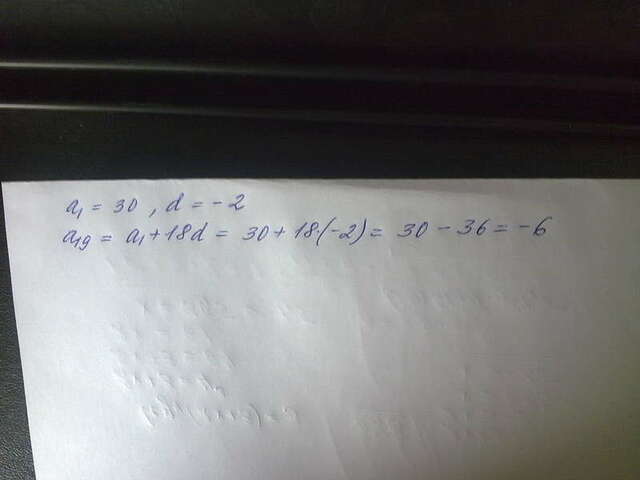 a₁ = 30 , d = -2
a₁₉ = a₁ + 18d = 30 + 18·(-2) = 30 - 36 = -6